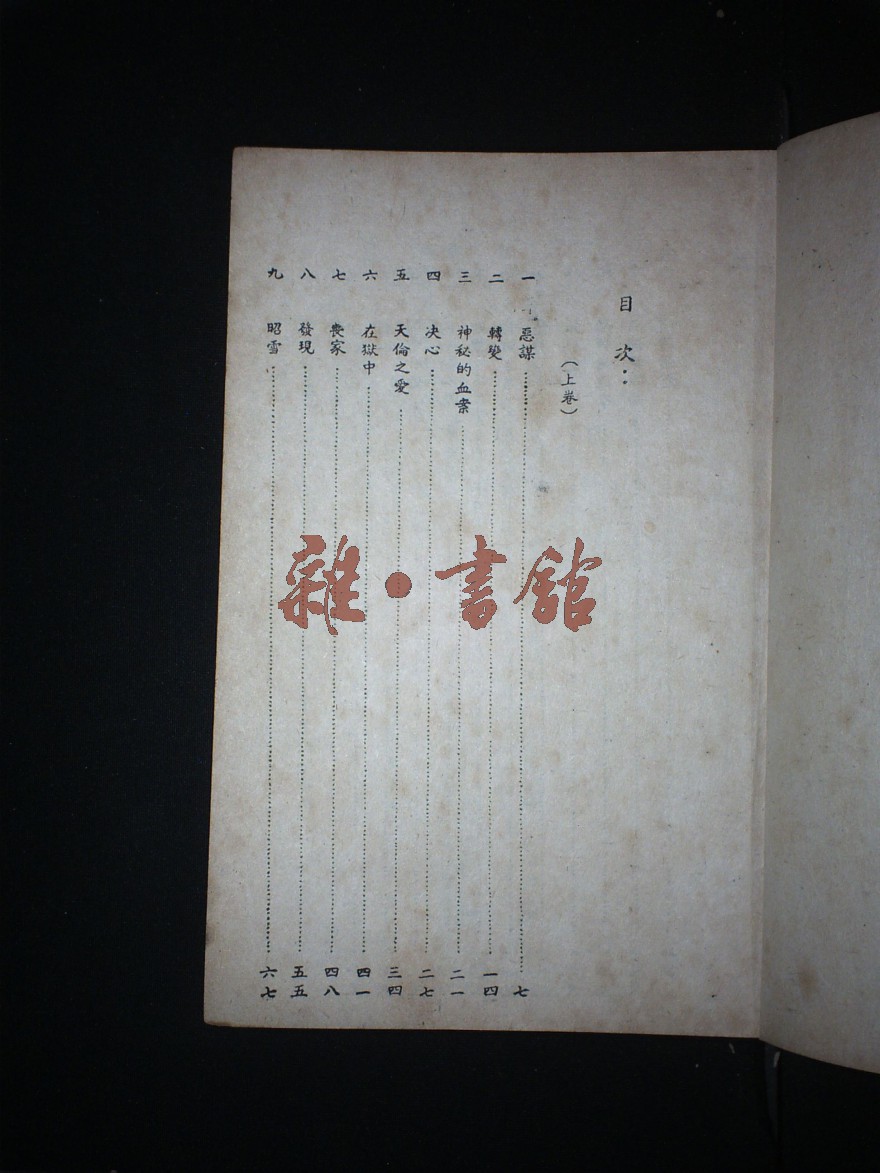 目次：
（上卷）
一 惡謀……七
二 轉變……一四
三 神秘的血案……二一
四 决心……二七
五 天倫之愛……三四
六 在獄中……四一
七 喪家……四八
八 發現……五五
九 昭雪……六七
雜•書館